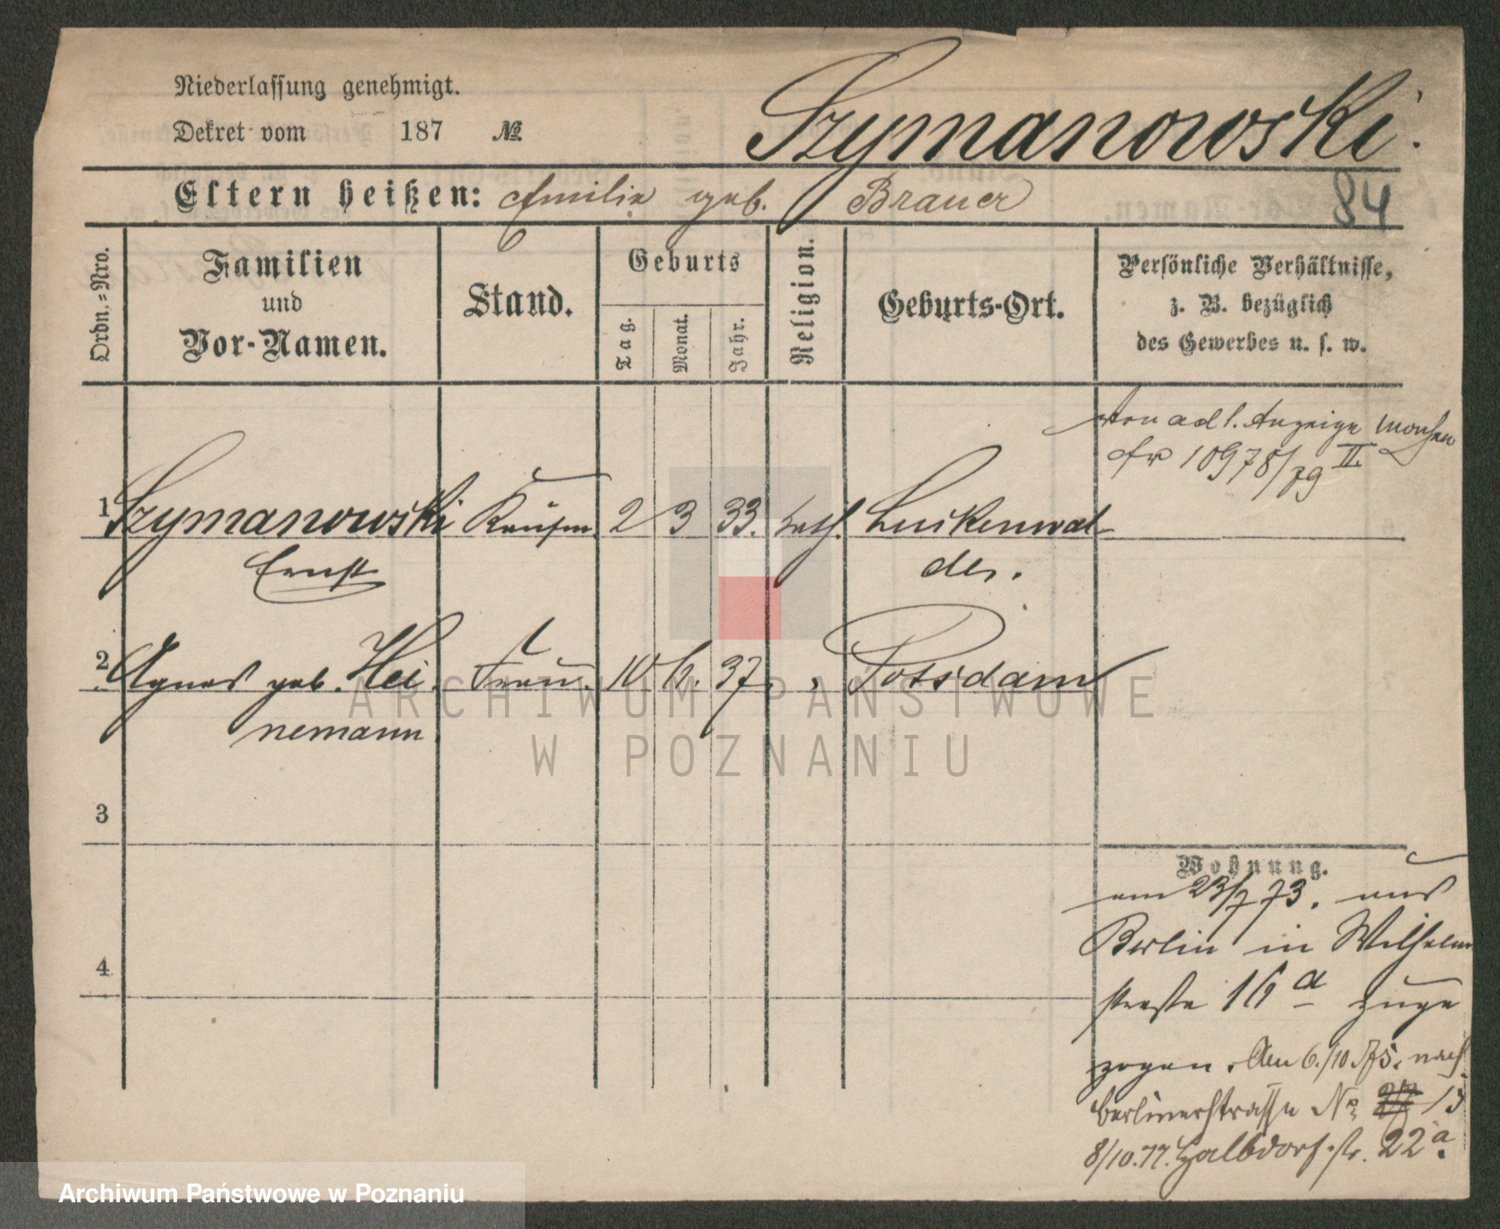 Niederlassung genehmigt.
Dekret vom 187 №
Szymanowski.
Eltern heißen: Emilie geb. Brauer
84
Ordn.-Nro.
Familien
und
Vor-Namen.
Stand.
Geburts
Tag.
Monat.
Jahr.
Religion.
Geburts-Ort.
Persönliche Verhältnisse,
z. B. bezüglich
des Gewerbes u. s. w.
ad 1. Anzeige
10978/79 II
1 Szymanowski Kaufm. 2 3 33. kath. Luckenwal-
Ernst
de.
2 Agnes geb. Hei- Frau. 10 6. 37. " Potsdam
nemann
3
4
Wohnung.
am 23/7 73. aus
Berlin in Wilhelm
straße 16 a zuge
zogen. Am 6./10.75. nach
Berlinerstrasse No. 13
8/10.77. Halbdorf-str. 22a.
ARCHIWUM PAŃSTWOWE
W POZNANIU
Archiwum Państwowe w Poznaniu